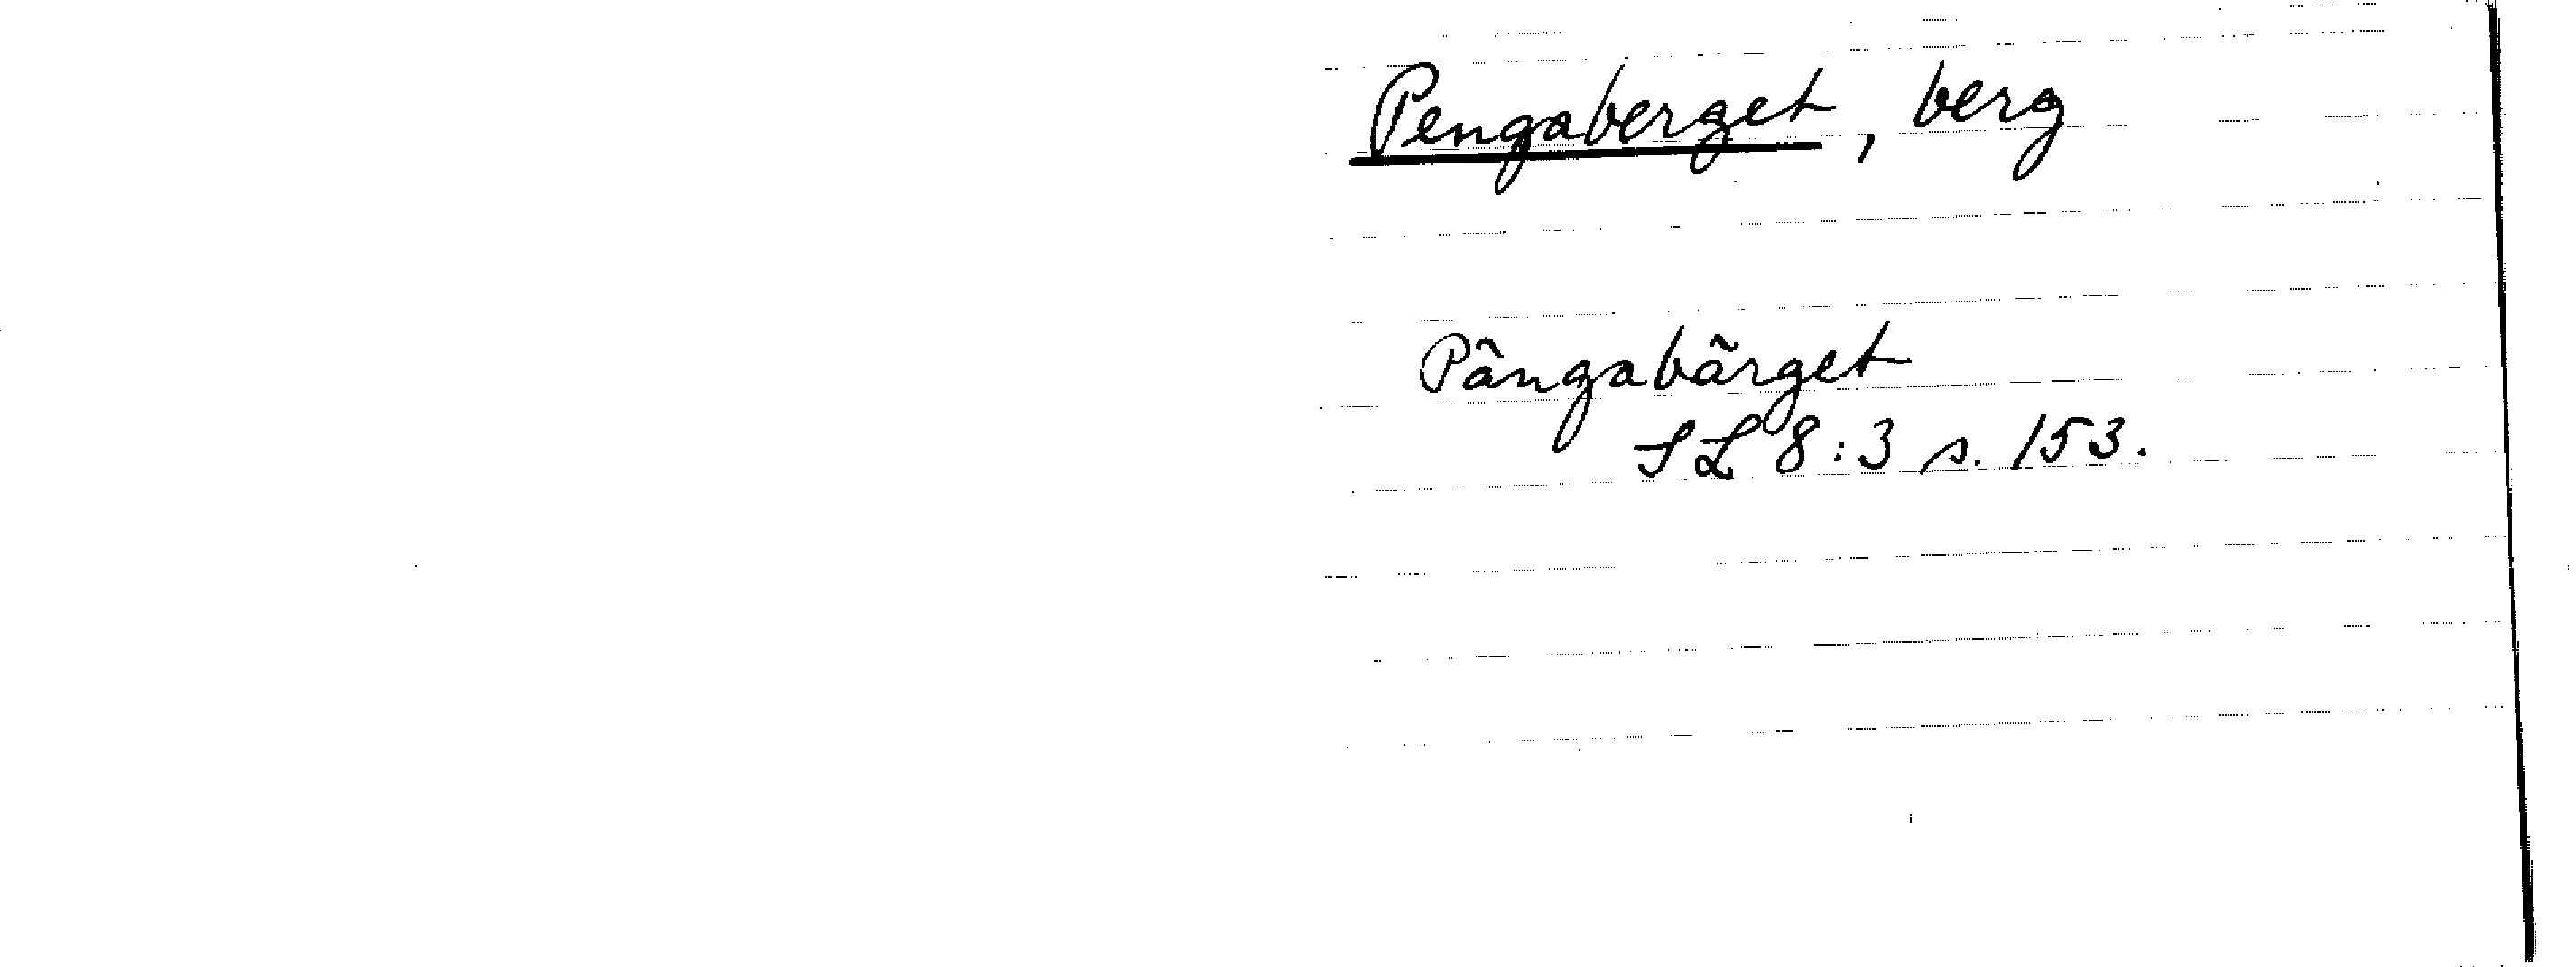 Pengaberget, berg
Pängabärget
SL 8:3 s. 153.